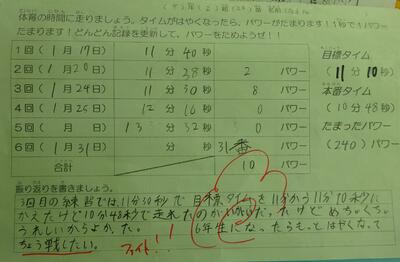 体育の時間に走りましょう。タイムがはやくなったら、パワーがたまります!1秒で1パワー
たまります!どんどん記録を更新して、パワーをためようぜ!!
1回(1月17日) 11分40秒
2回(1月20日) 11分38秒 2パワー
3回(1月24日) 11分30秒 8パワー
4回(1月25日) 12分16秒 0パワー
5回( 月 日) 13分32秒 0パワー
6回(1月31日) 分 秒 31番 パワー
合計 10パワー
目標タイム
(11分10秒)
本番タイム
(10分48秒)
たまったパワー
(240)パワー
振り返りを書きましょう。
3回目の練習では、11分30秒で目標タイムを11分から11分10秒に
かえたけど10分48秒で走れたのが だ。だけどめちゃくちゃ
うれしいからよかった。6年生になったらもっとはやくなって
ちょう戦したい。
ファイト!!